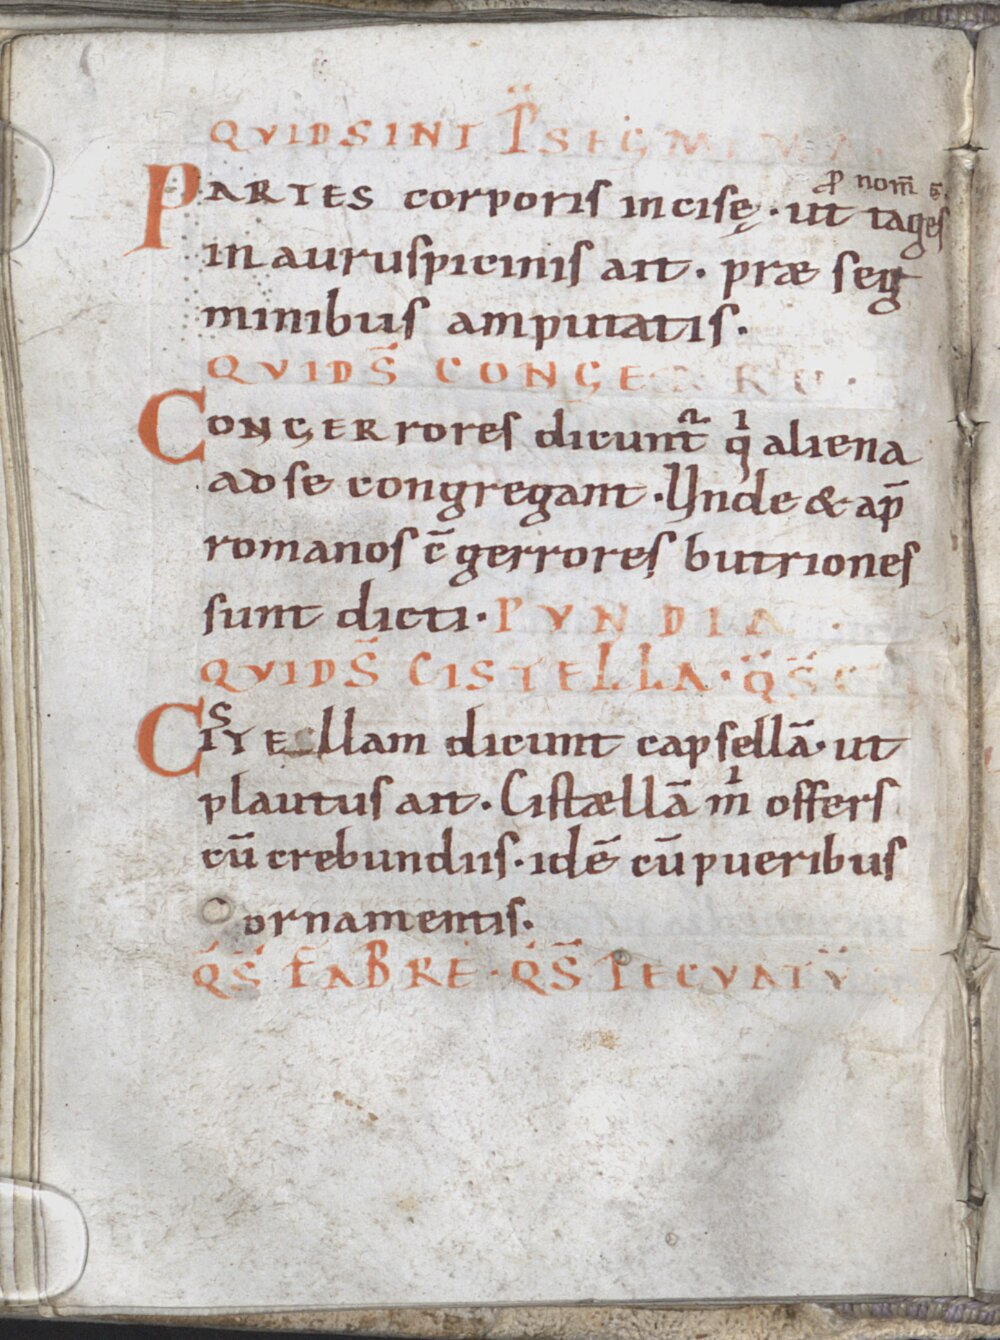 QVIDSINT P̈SEGMINA
ꝓ nom̄ ē
PARTES corporis incisę · ut tages
in auruspicinis ait · præ seg
minibus amputatis ·
QVIDS̄ CONGERRO ·
CONGERrores dicunt̃ qͥ aliena
ad se congregant · Vnde & ap̄
romanos c̄gerrores butriones
sunt dicti · PVNDIA ·
QVIDS̄ CISTELLA · Q̈S̈
CISTEllam dicunt capsellā · ut
plautus ait · Cistællā mͥ offers
cū crebundiis · idē cū pueribus
ornamentis ·
QS̄ FABRE · QS̄ PECVATV̈